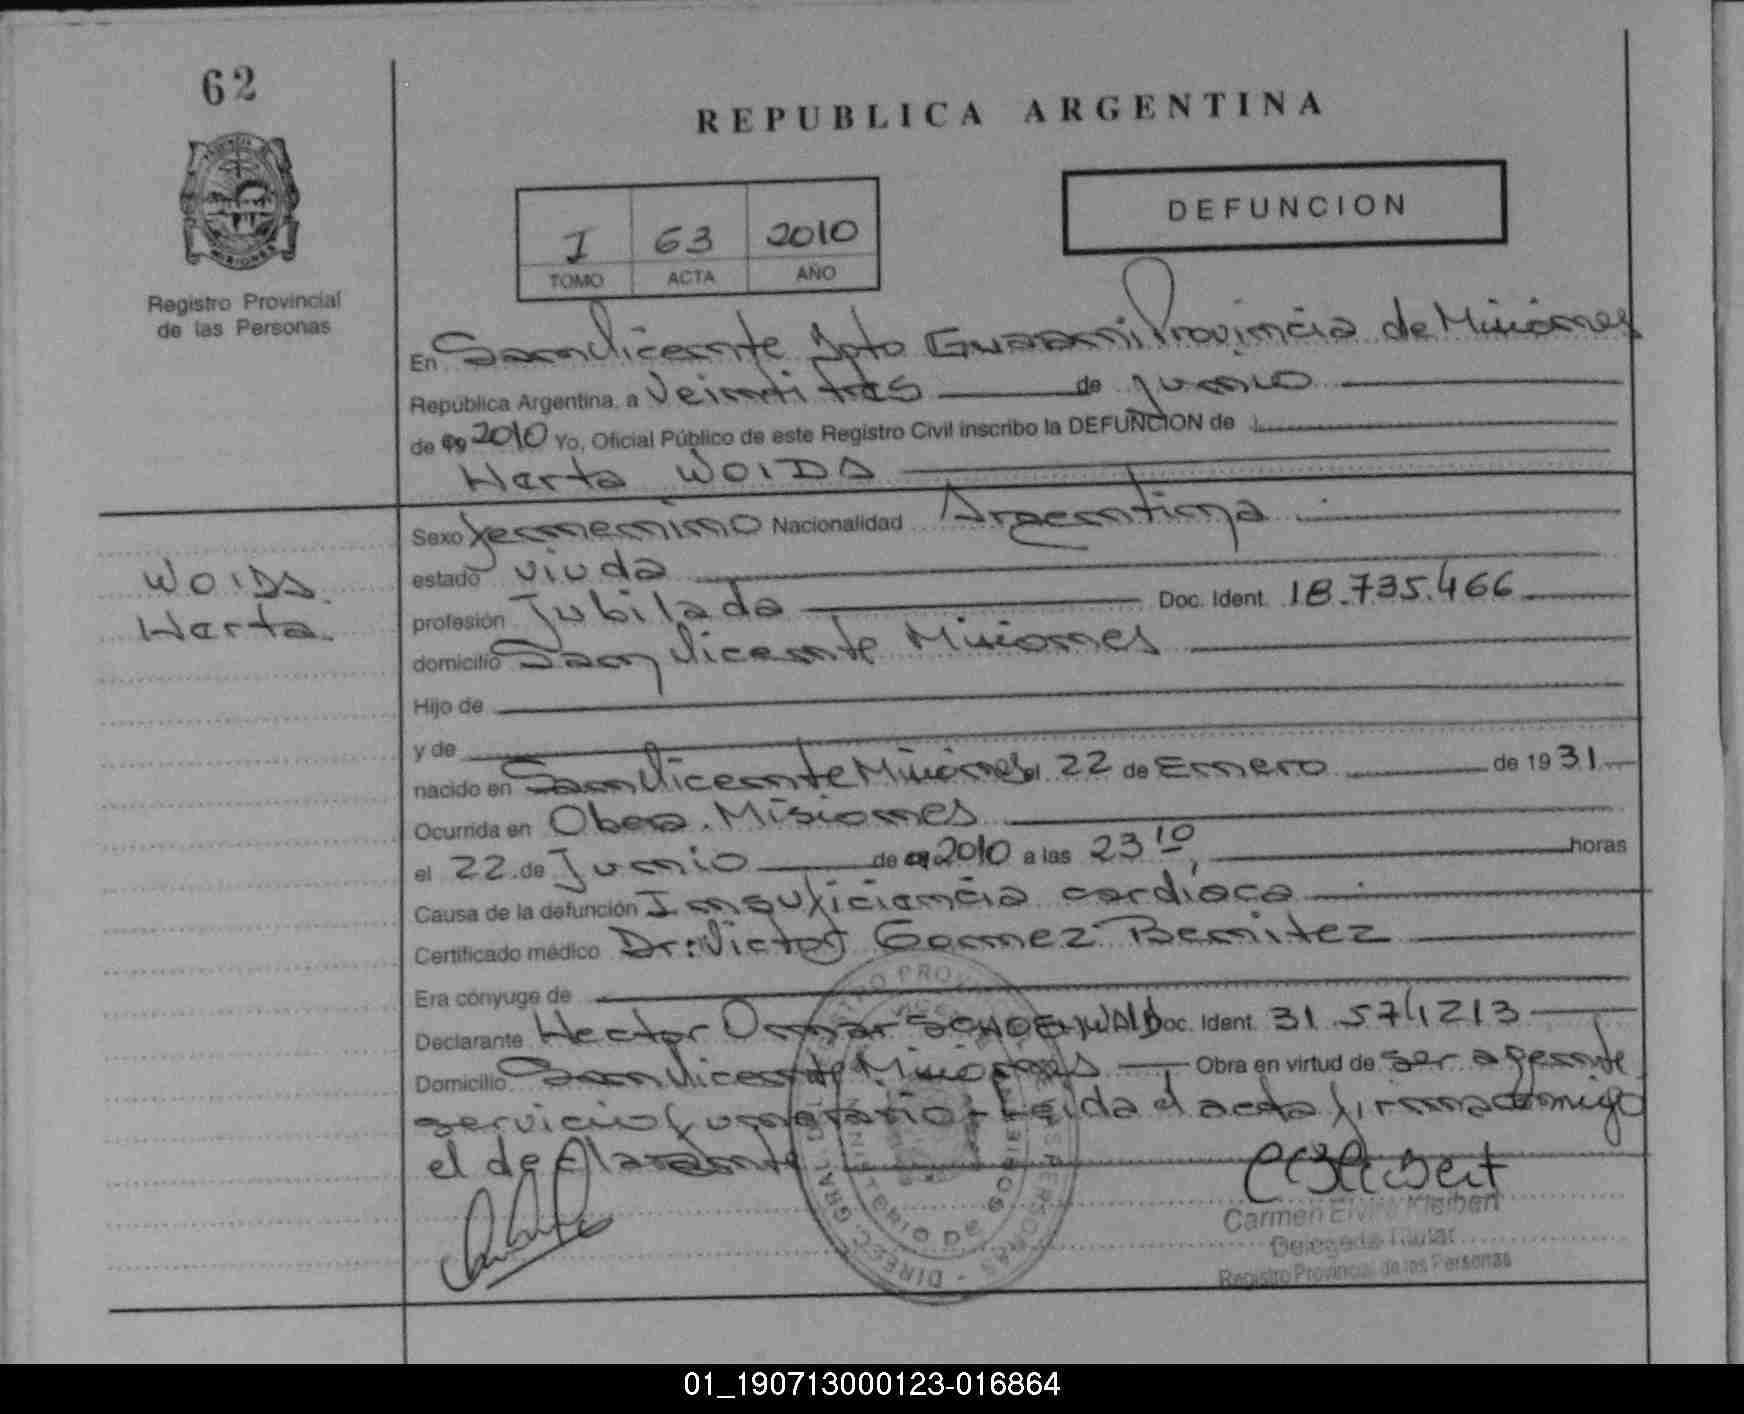 62
REPUBLICA ARGENTINA
MISIONES
Registro Provincial
de las Personas
I 63 2010
TOMO ACTA AÑO
DEFUNCION
En San Vicente Dpto Guaraní Provincia de Misiones
República Argentina, a Veintitres de junio
de 2010 Yo, Oficial Público de este Registro Civil inscribo la DEFUNCION de
Herta WOIDA
WOIDA
Herta.
Sexo femenino Nacionalidad Argentina
estado viuda
profesión Jubilada Doc. Ident. 18.735.466
domicilio San Vicente Misiones
Hijo de
y de
nacido en San Vicente Misiones el 22 de Enero de 1931
Ocurrida en Obera. Misiones
el 22 de Junio de 2010 a las 23 10 horas
Causa de la defunción Insuficiencia cardíaca
Certificado médico Dr: Victor Gomez Benitez
Era cónyuge de
Declarante Hector Omar SCHOENWALD Doc. Ident. 31.571.213
Domicilio San Vicente Misiones Obra en virtud de ser agente
servicio funerario - Leida el acta firma conmigo
el declarante
Carmen Elvira Kleibert
Delegada Titular
Registro Provincial de las Personas
01_190713000123-016864